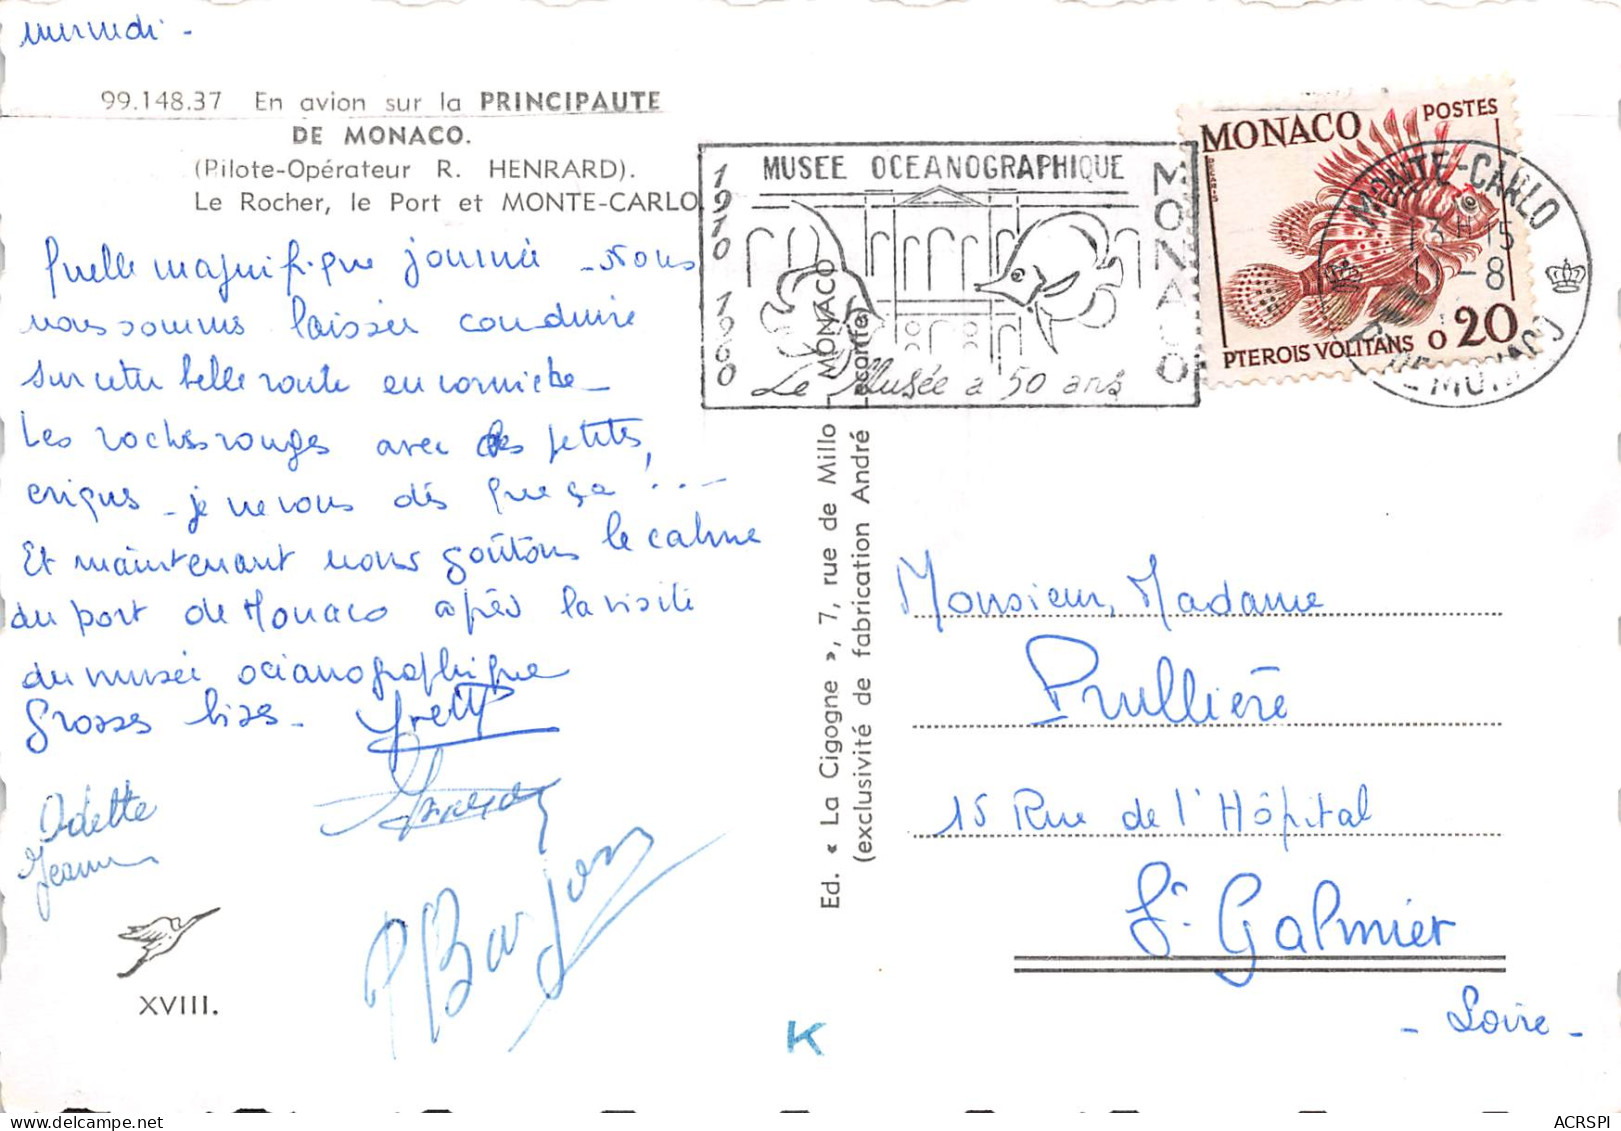 mercredi -
99.148.37 En avion sur la PRINCIPAUTE
DE MONACO.
(Pilote-Opérateur R. HENRARD).
Le Rocher, le Port et MONTE-CARLO.
Quelle magnifique journée - Nous
nous sommes laissées conduire
sur cette belle route en corniche -
Les roches rouges avec des petites
criques - je ne vous dis que ça ! . . -
Et maintenant nous goûtons le calme
du port de Monaco après la visite
du musée océanographique
Grosses bises - Yvette
Odette
Jeanne
XVIII.
Ed. « La Cigogne », 7, rue de Millo - MONACO
(exclusivité de fabrication André Leconte)
1910 1960
MUSEE OCEANOGRAPHIQUE
MONACO
Le Musée a 50 ans
MONACO POSTES
PTEROIS VOLITANS 0.20
MONTE-CARLO
13H15
-8
Monsieur, Madame
Prullière
15 Rue de l'Hôpital
St Galmier
- Loire -
K
ACRSPI